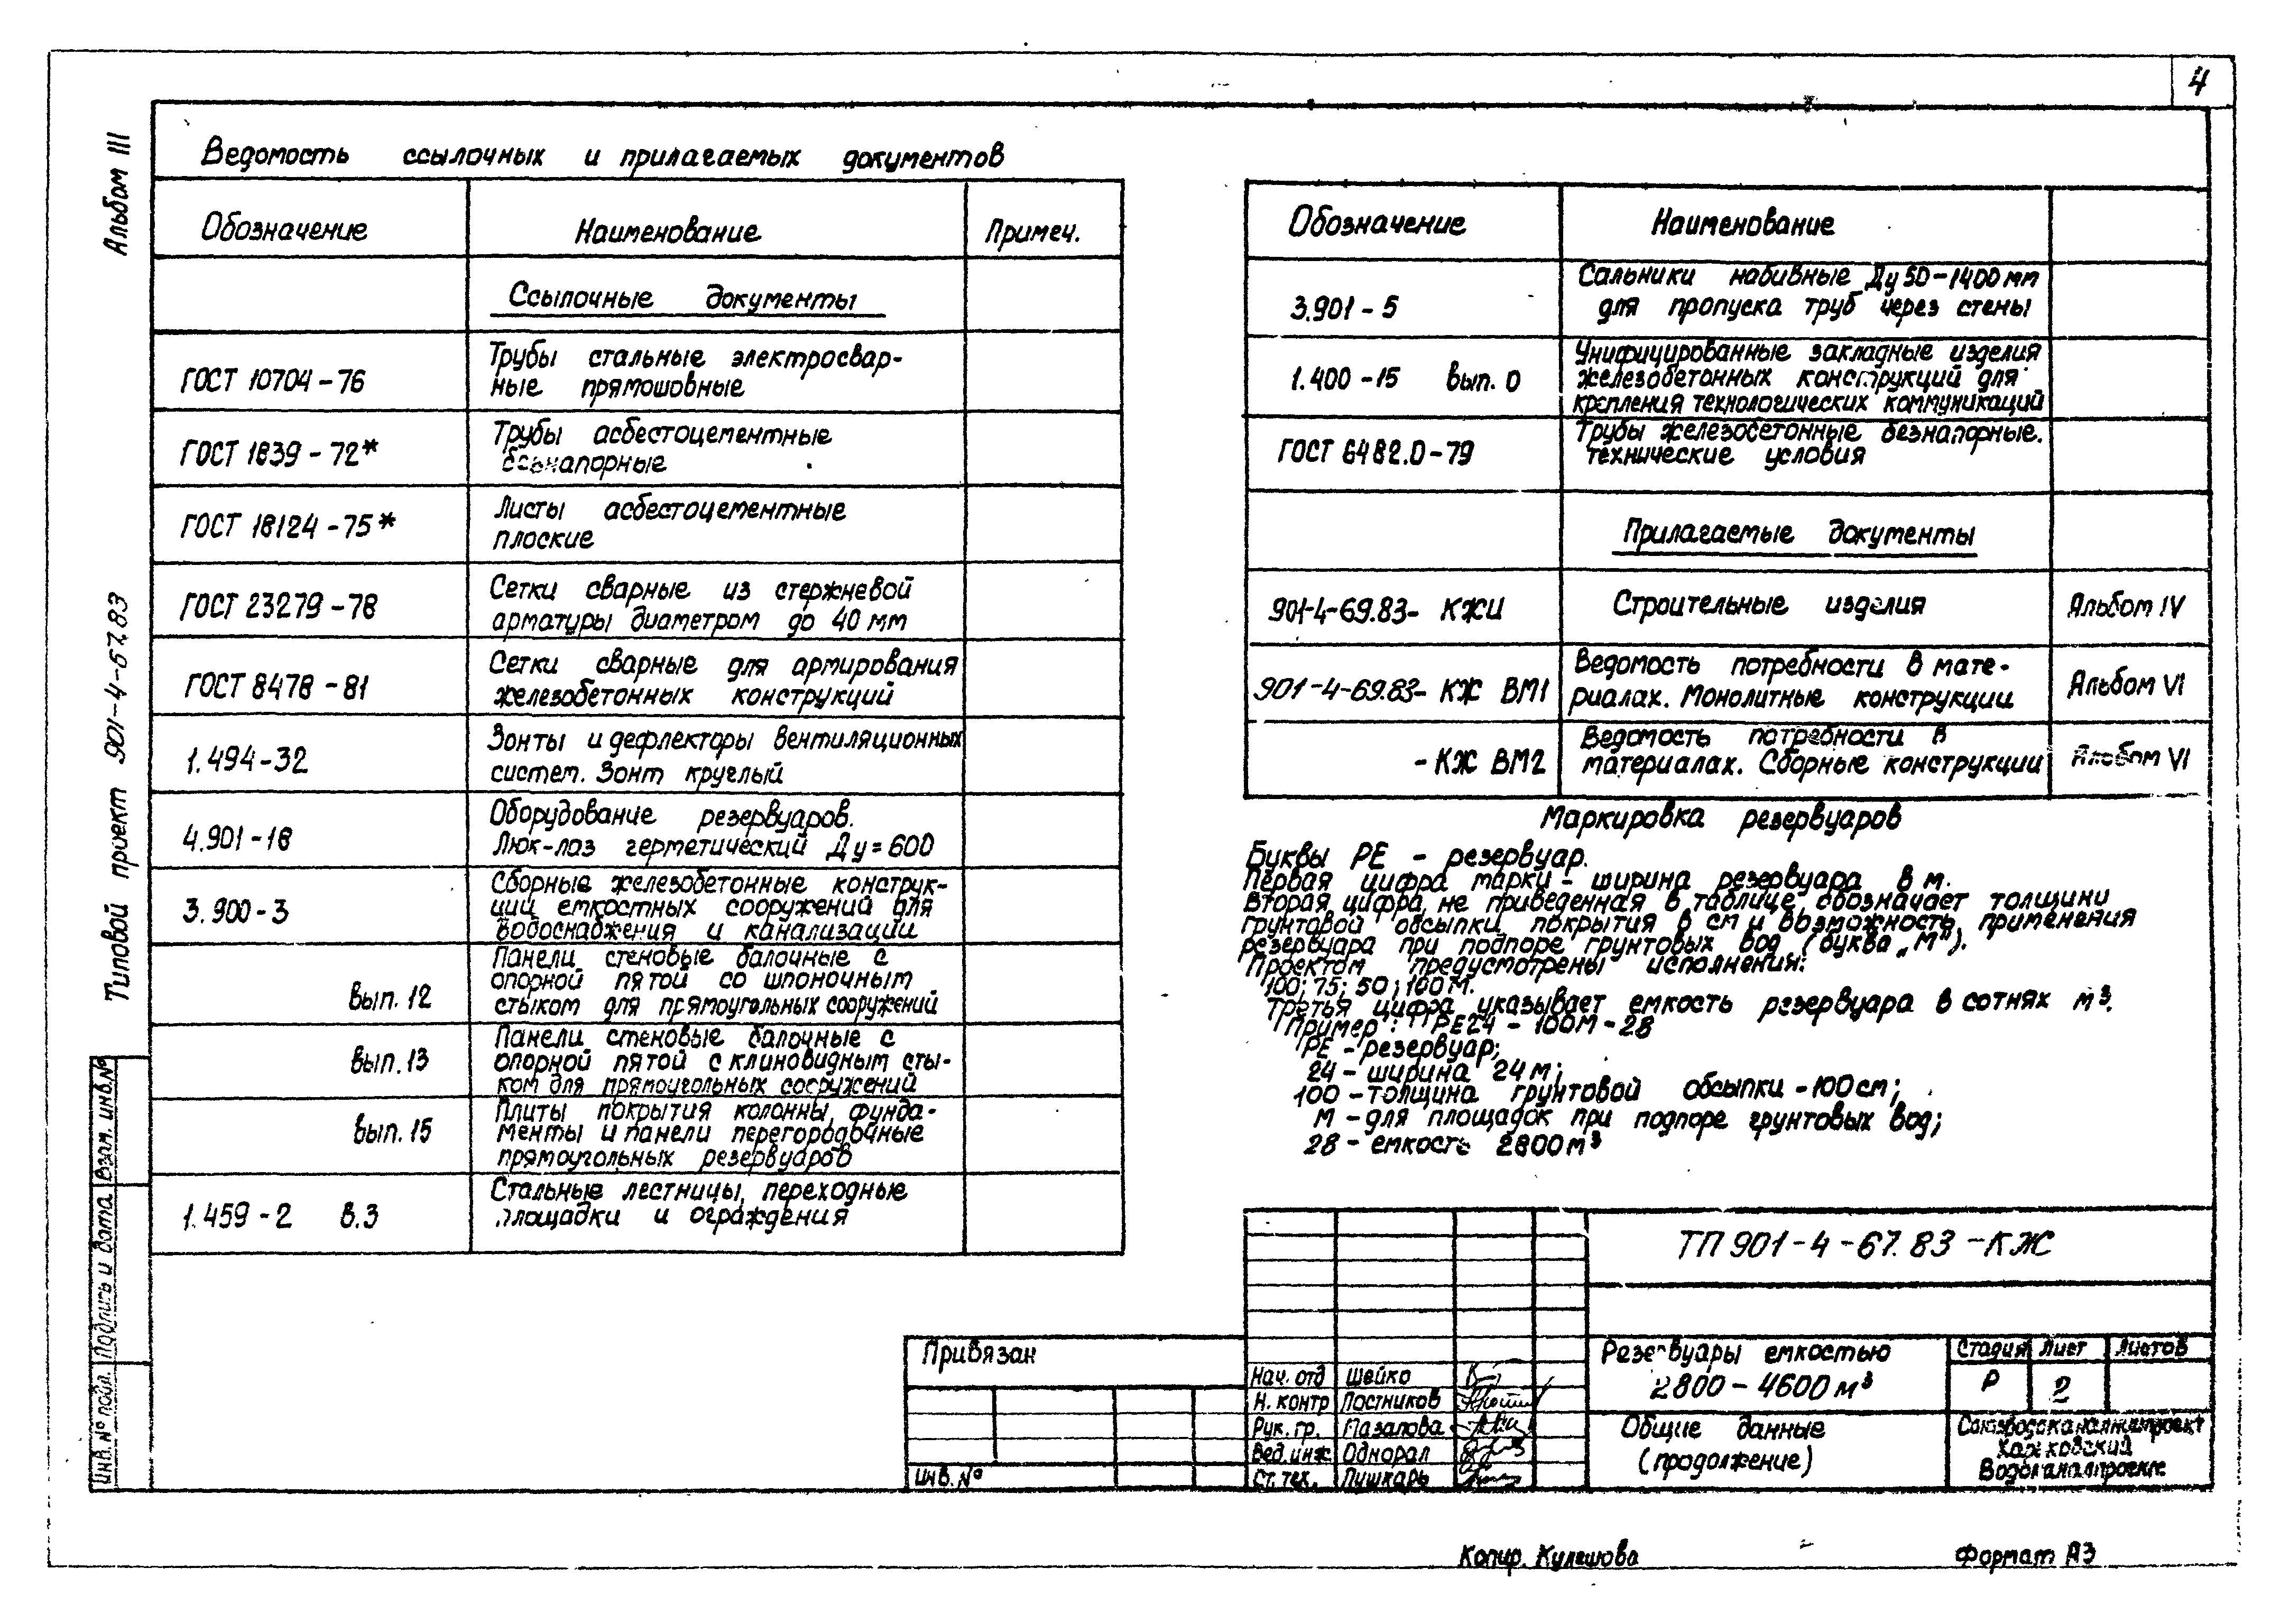 4
Альбом III
Типовой проект 901-4-67.83
Ведомость ссылочных и прилагаемых документов
Обозначение Наименование Примеч.
Ссылочные документы
ГОСТ 10704-76
Трубы стальные электросвар-
ные прямошовные
ГОСТ 1839-72*
Трубы асбестоцементные
безнапорные
ГОСТ 18124-75*
Листы асбестоцементные
плоские
ГОСТ 23279-78
Сетки сварные из стержневой
арматуры диаметром до 40 мм
ГОСТ 8478-81
Сетки сварные для армирования
железобетонных конструкций
1.494-32
Зонты и дефлекторы вентиляционных
систем. Зонт круглый
4.901-18
Оборудование резервуаров.
Люк-лаз герметический Ду=600
3.900-3
Сборные железобетонные конструк-
ции емкостных сооружений для
водоснабжения и канализации
Вып. 12
Панели стеновые балочные с
опорной пятой со шпоночным
стыком для прямоугольных сооружений
Вып. 13
Панели стеновые балочные с
опорной пятой с клиновидным сты-
ком для прямоугольных сооружений
Вып. 15
Плиты покрытия колонны, фунда-
менты и панели перегородочные
прямоугольных резервуаров
1.459-2 В.3
Стальные лестницы, переходные
площадки и ограждения
Обозначение Наименование
3.901-5
Сальники набивные Ду 50-1400 мм
для пропуска труб через стены
1.400-15 Вып. 0
Унифицированные закладные изделия
железобетонных конструкций для
крепления технологических коммуникаций
ГОСТ 6482.0-79
Трубы железобетонные безнапорные.
технические условия
Прилагаемые документы
901-4-69.83- КЖИ Строительные изделия Альбом IV
901-4-69.83- КЖ ВМ1
Ведомость потребности в мате-
риалах. Монолитные конструкции
Альбом VI
-КЖ ВМ2
Ведомость потребности в
материалах. Сборные конструкции
Альбом VI
Маркировка резервуаров
Буквы РЕ - резервуар.
Первая цифра марки - ширина резервуара в м.
Вторая цифра, не приведенная в таблице, обозначает толщини
грунтовой обсыпки покрытия в см и возможность применения
резервуара при подпоре грунтовых вод (буква „М").
Проектом предусмотрены исполнения:
100; 75; 50; 100М.
Третья цифра указывает емкость резервуара в сотнях м³.
Пример: РЕ24-100М-28
РЕ - резервуар;
24 - ширина 24 м;
100 - толщина грунтовой обсыпки - 100 см;
М - для площадок при подпоре грунтовых вод;
28 - емкость 2800 м³
ТП 901-4-67.83 -КЖ
Привязан
Инв. №
Нач. отд Шейко
Н. контр Постников
Рук. гр.
Вед. инж Однорал
Ст. тех. Пушкарь
Резервуары емкостью
2800-4600 м³
Общие данные
(продолжение)
Стадия Лист Листов
Р 2
Союзводоканалниипроект
Харьковский
Водоканалпроект
Инв. № подл. Подпись и дата Взам. инв. №
Копир. Кулешова
Формат А3